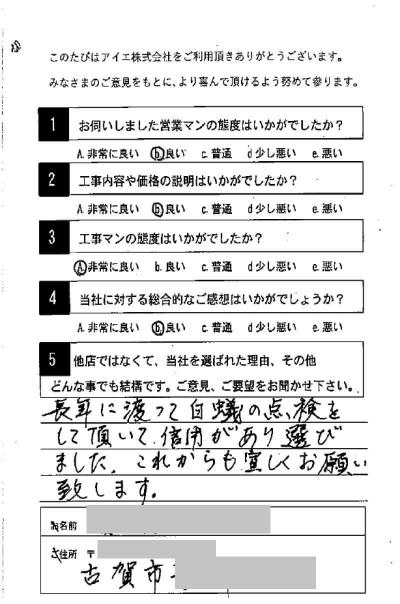 このたびはアイエ株式会社をご利用頂きありがとうございます。
みなさまのご意見をもとに、より喜んで頂けるよう努めて参ります。
1 お伺いしました営業マンの態度はいかがでしたか？
A.非常に良い b.良い c.普通 d少し悪い e.悪い
2 工事内容や価格の説明はいかがでしたか？
A.非常に良い b.良い c.普通 d少し悪い e.悪い
3 工事マンの態度はいかがでしたか？
A.非常に良い b.良い c.普通 d少し悪い e.悪い
4 当社に対する総合的なご感想はいかがでしょうか？
A.非常に良い b.良い c.普通 d少し悪い e.悪い
5 他店ではなくて、当社を選ばれた理由、その他
どんな事でも結構です。ご意見、ご要望をお聞かせ下さい。
長年に渡って白蟻の点検を
して頂いて、信用があり選び
ました。これからも宜しくお願い
致します。
お名前
ご住所 〒
古賀市